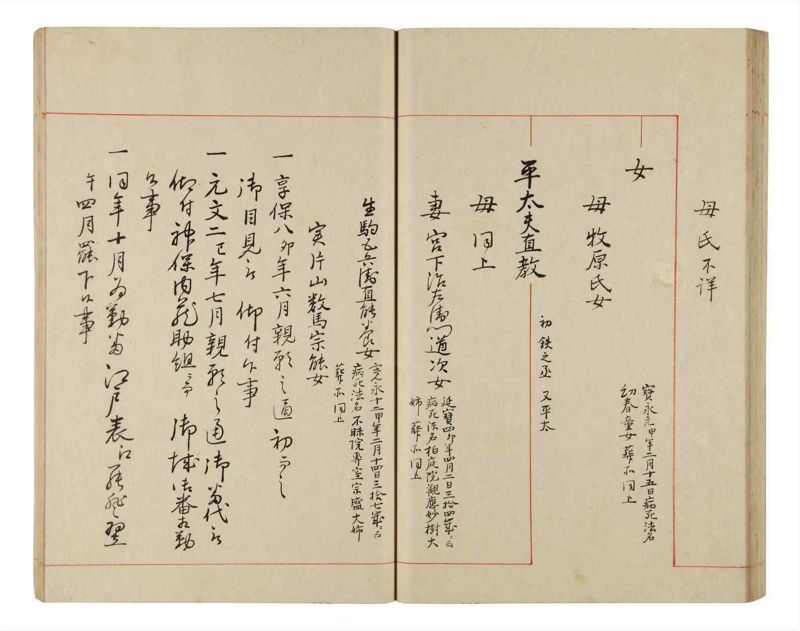 母氏不詳
女
寳永元甲年二月十五日病死法名
幻春童女葬所同上
母 牧原氏女
平太夫直教
初鉄之丞 又平太
母 同上
妻 宮下治左衛門道次女
延寳四夘年四月二日三拾四歳ニ而
病死法名柏庭院観應妙樹大
姉葬所同上
生駒 兵衛直能養女
実片山数馬宗能女
永十二甲年二月十四日三拾七歳ニ而
病死法名不昧院専室宗盛大姉
葬所同上
一 享保八夘年六月親願之通初而之
御目見被 仰付候事
一 元文二巳年七月親願之通御番代被
仰付神保内蔵助組ニ而 御城御番相勤
候事
一 同年十月為勤番江戸表江 翌
午四月罷下候事